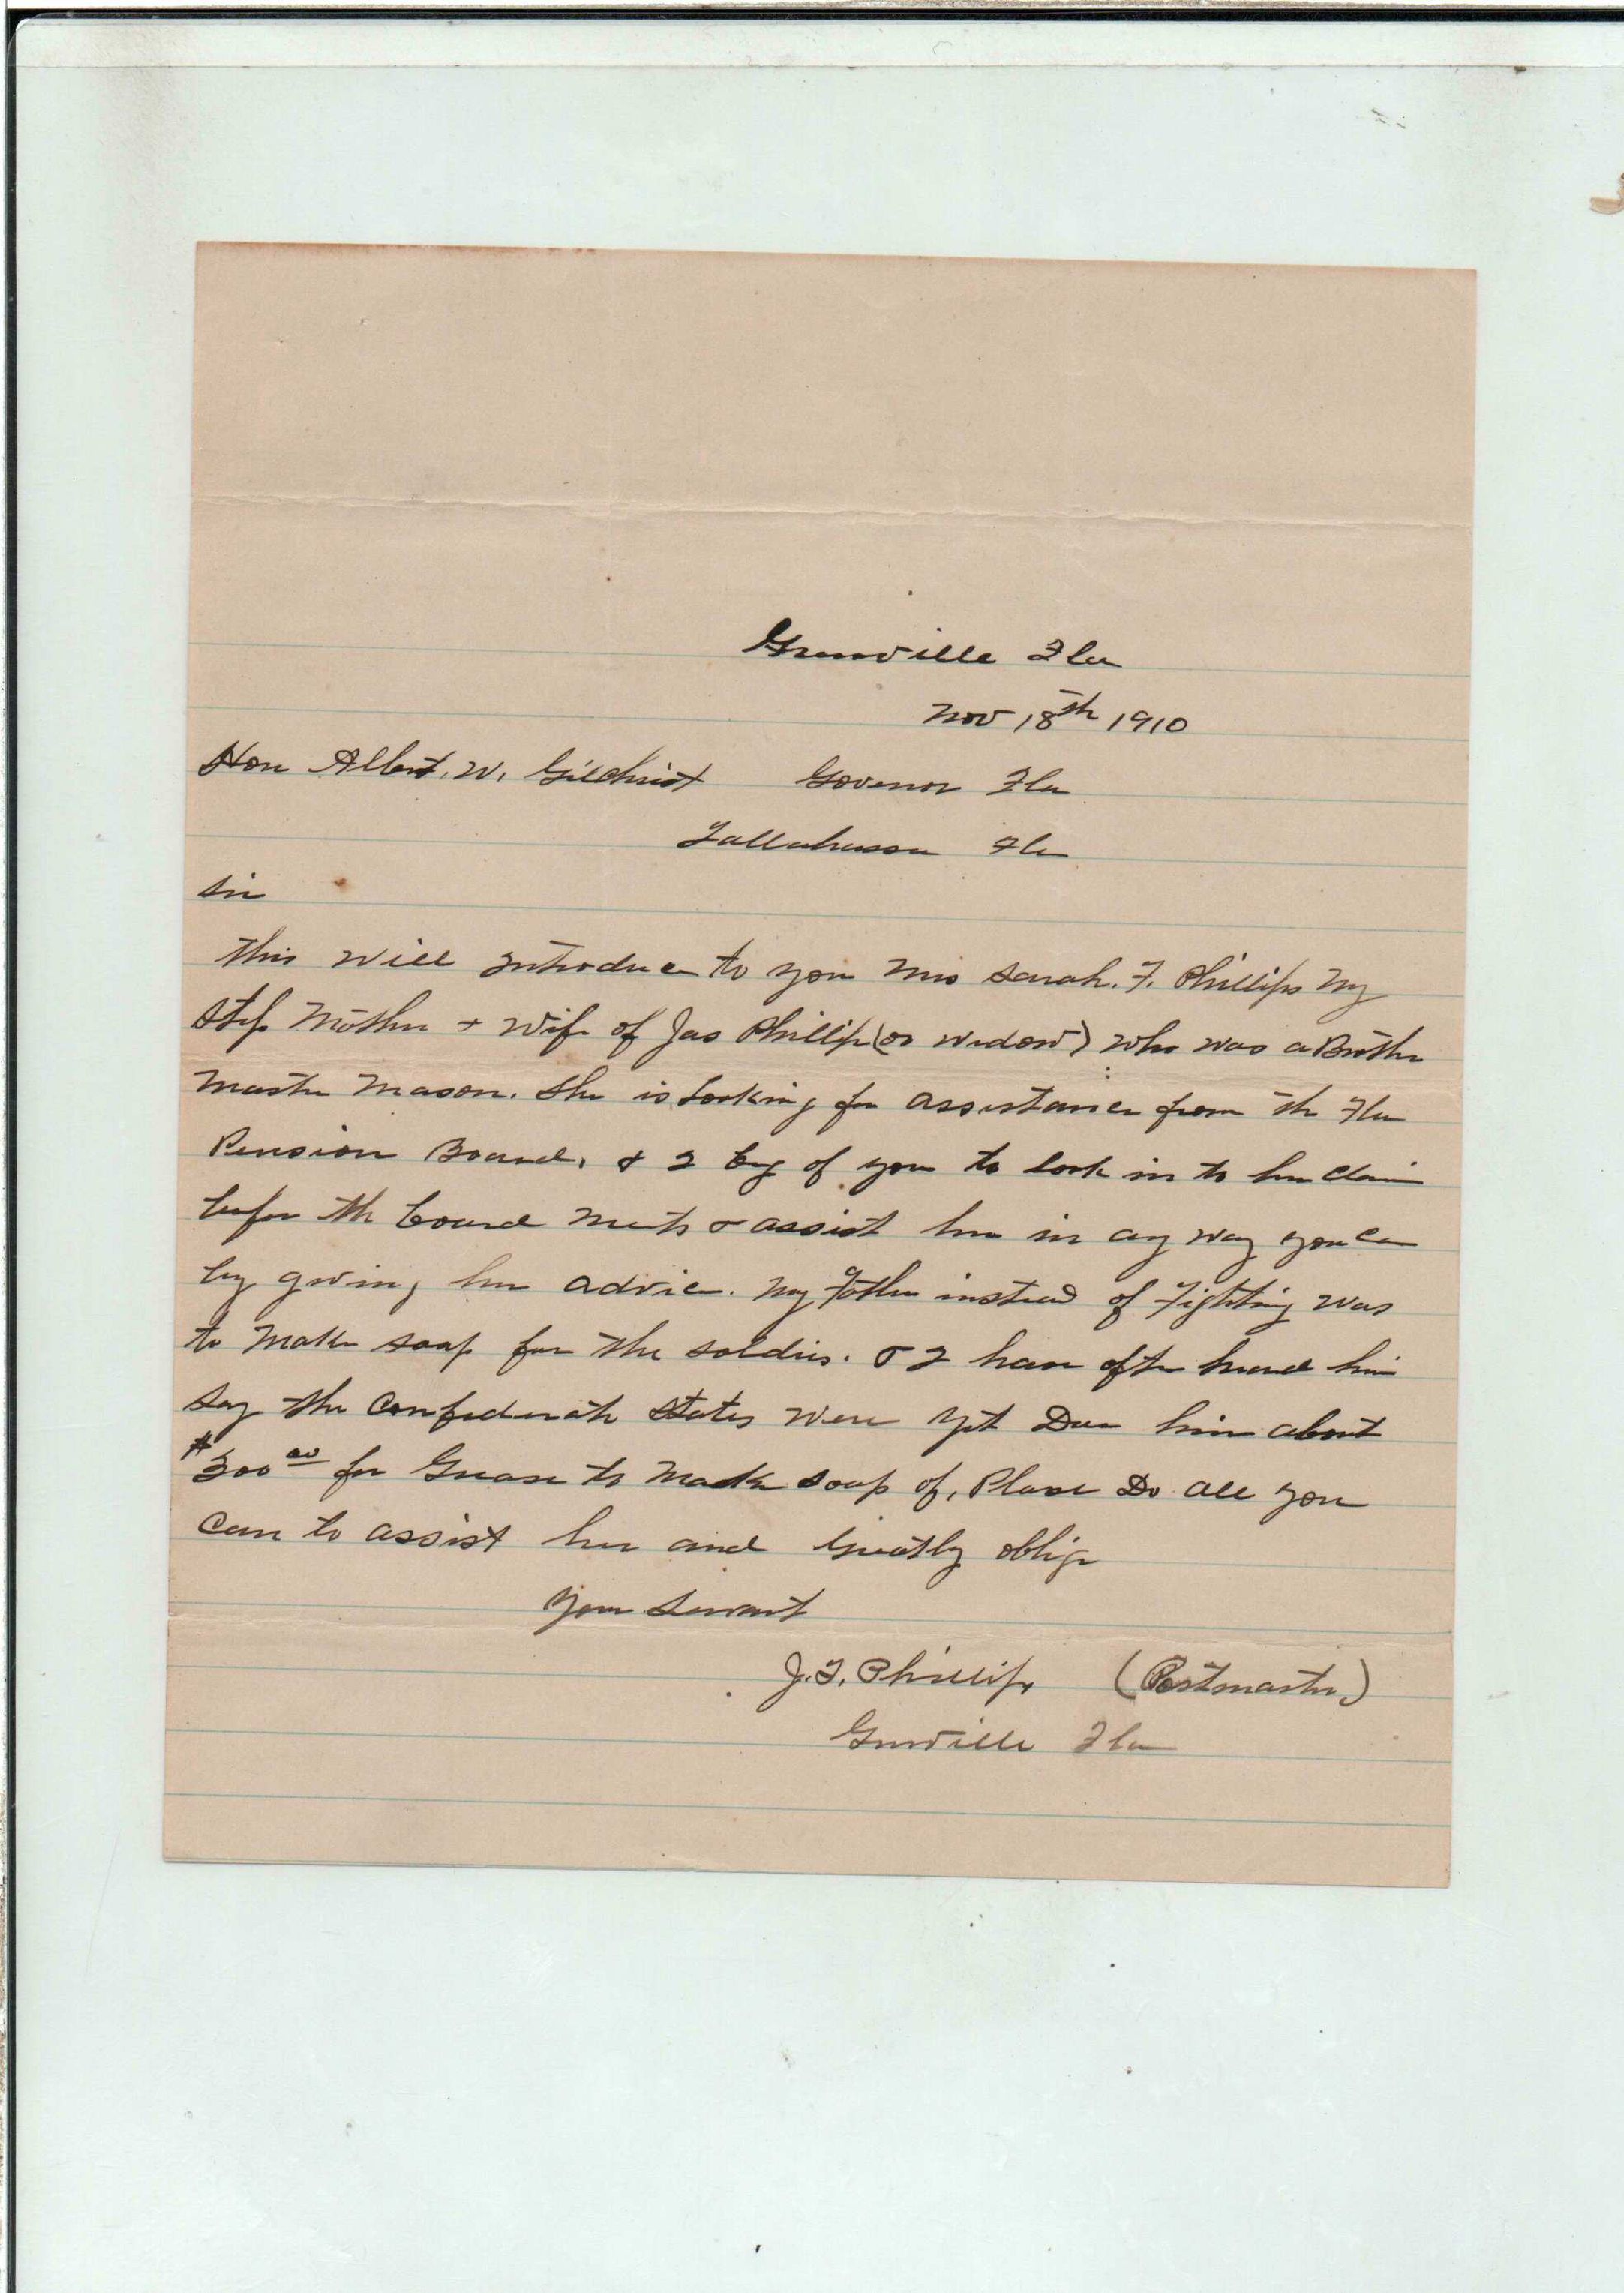 Greenville Fla
Nov 18th 1910
Hon Albert. W. Gilchrist Govenor Fla
Tallahassee Fla
Sir
This will introduce to you Mrs Sarah. F. Phillips My
Step Mother + Wife of Jas Phillips (or widow) who was a Brother
Master Mason. She is looking for assistance from the Fla
Pension Board, & I beg of you to look in to her claim
before the board meets & assist her in any way you can
by giving her advice. My Father instead of Fighting was
to make soap for the soldiers. & I have often heard him
say the Confederate States were yet Due him about
$300.00 for Grease to make soap of, Please Do all you
can to assist her and Greatly oblige
Your Servant
J. F. Phillips (Postmaster)
Greenville Fla